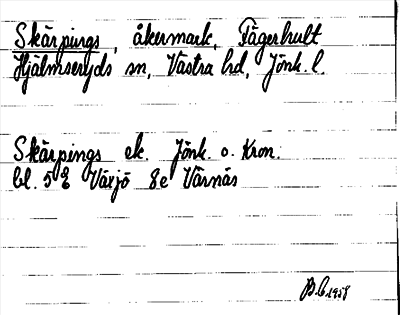 Skärpings, åkermark, Fagerhult
Hjälmseryds sn, Västra hd, Jönk. l.
Skärpings ek. Jönk. o. Kron.
bl. 5 E Växjö 8e Värnäs
B.E. 1958